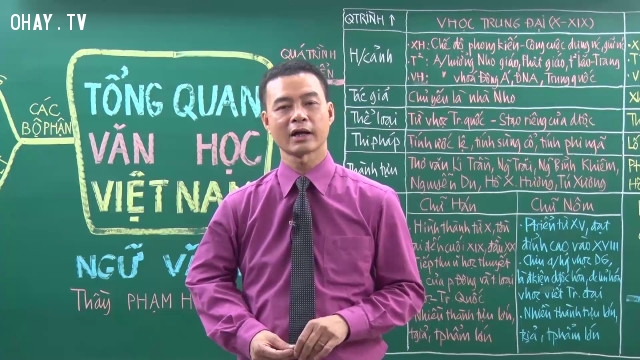 OHAY.TV
CÁC
BỘ PHẬN
TỔNG QUAN
VĂN HỌC
VIỆT NAM
NGỮ
Thầy PHẠM H
QUÁ TRÌNH
QTRÌNH ↑
VHỌC TRUNG ĐẠI (X-XIX)
H/cảnh
• XH: Chế độ phong kiến - Công cuộc dựng nc, giữ nc
Nho giáo, Phật giáo, Lão-Trang
• VH: Vhoá Đông Á, ĐNA, Trung quốc
Tác giả
Chủ yếu là nhà Nho
Thể loại
Từ vhọc Tr quốc - Stạo riêng của dtộc
Thi pháp
Tính ước lệ, tính sùng cổ, tính phi ngã
Thành tựu
Thơ văn Lí Trần, Ng Trãi, Ng Bỉnh Khiêm,
Nguyễn Du, Hồ X Hương, Tú Xương
Chữ Hán
- Hình thành từ X, tồn
tại đến cuối XIX, đầu XX
Tiếp thu
Tr Quốc
Nhiều thành tựu lớn,
tgiả, tphẩm lớn
Chữ Nôm
- Ptriển từ XV, đạt
đỉnh cao vào XVIII
- Chịu a/hg vhọc DG,
vhọc viết Tr. đại
- Nhiều thành tựu lớn,
tgiả, tphẩm lớn